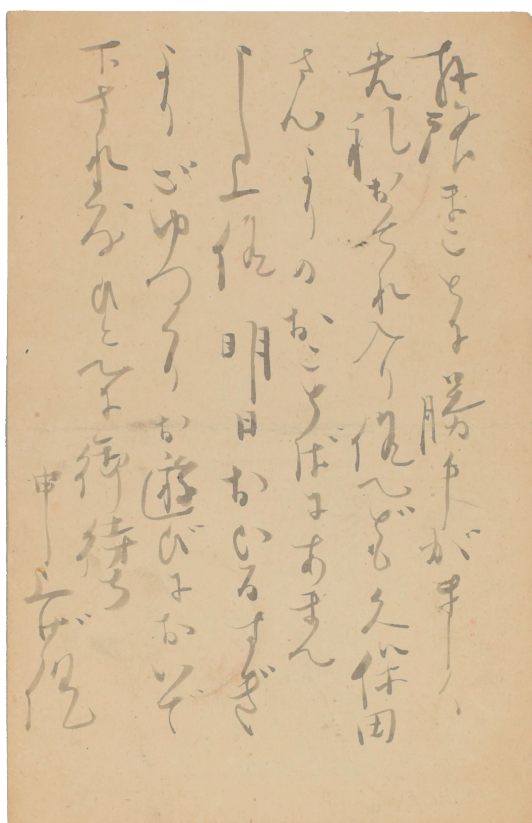 拝啓まことに勝手がましく
失礼おそれ入り候へども久保田
さんよりのおことばにあまん
じ上候明日おひるすぎ
よりごゆつくりお遊びにおいで
下され度ひとへに御待ち
申し上げ候